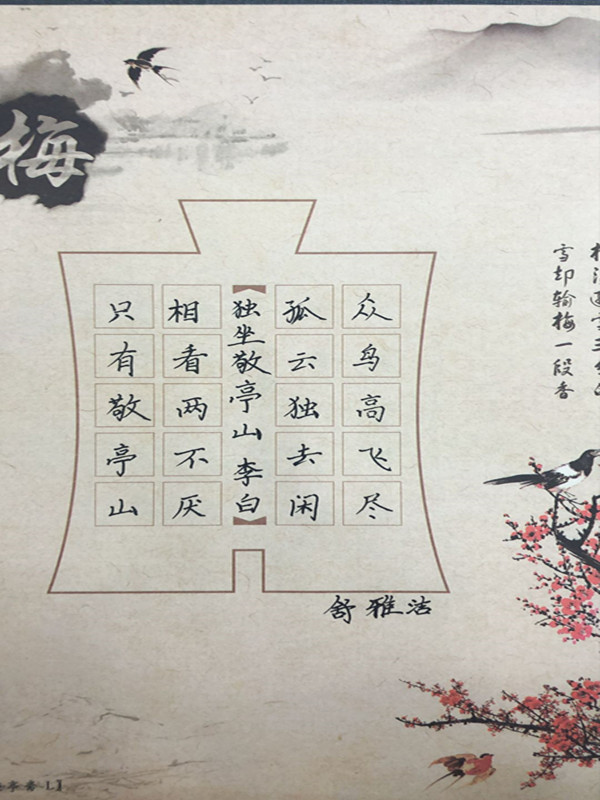 梅
雪却输梅一段香
众鸟高飞尽
孤云独去闲
独坐敬亭山 李白
相看两不厌
只有敬亭山
舒雅洁